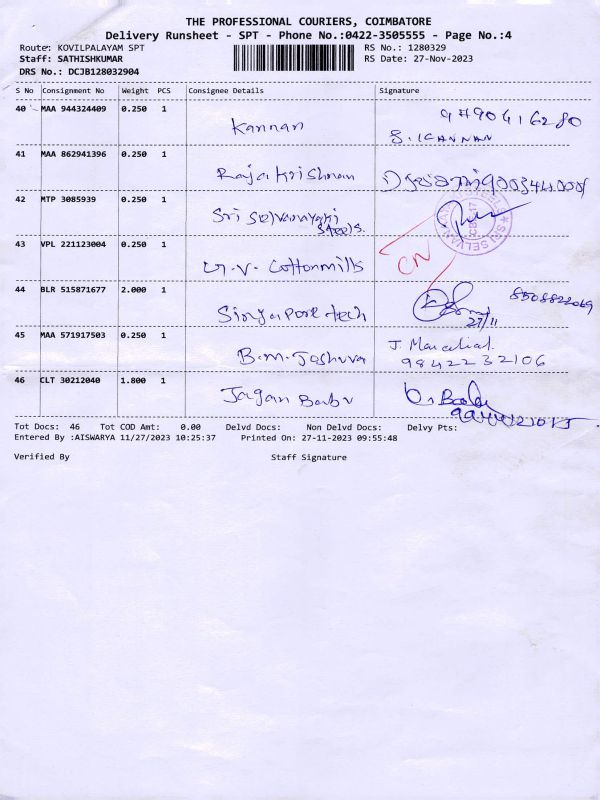 THE PROFESSIONAL COURIERS, COIMBATORE
Delivery Runsheet - SPT - Phone No.:0422-3505555 - Page No.:4
Route: KOVILPALAYAM SPT RS No.: 1280329
Staff: SATHISHKUMAR RS Date: 27-Nov-2023
DRS No.: DCJB128032904
S No Consignment No Weight PCS Consignee Details Signature
40 MAA 944324409 0.250 1 Kannan 9790416280
S. KANNAN
41 MAA 862941396 0.250 1 Raja Krishnan
42 MTP 3085939 0.250 1 Sri Selvanayaki
Steels.
43 VPL 221123004 0.250 1 Cottonmills CN
44 BLR 515871677 2.000 1 Singapore tech 8508822069
27/11
45 MAA 571917503 0.250 1 B.M. Joshuva J.
9842232106
46 CLT 30212040 1.800 1 Jagan Babu
Tot Docs: 46 Tot COD Amt: 0.00 Delvd Docs: Non Delvd Docs: Delvy Pts:
Entered By :AISWARYA 11/27/2023 10:25:37 Printed On: 27-11-2023 09:55:48
Verified By Staff Signature